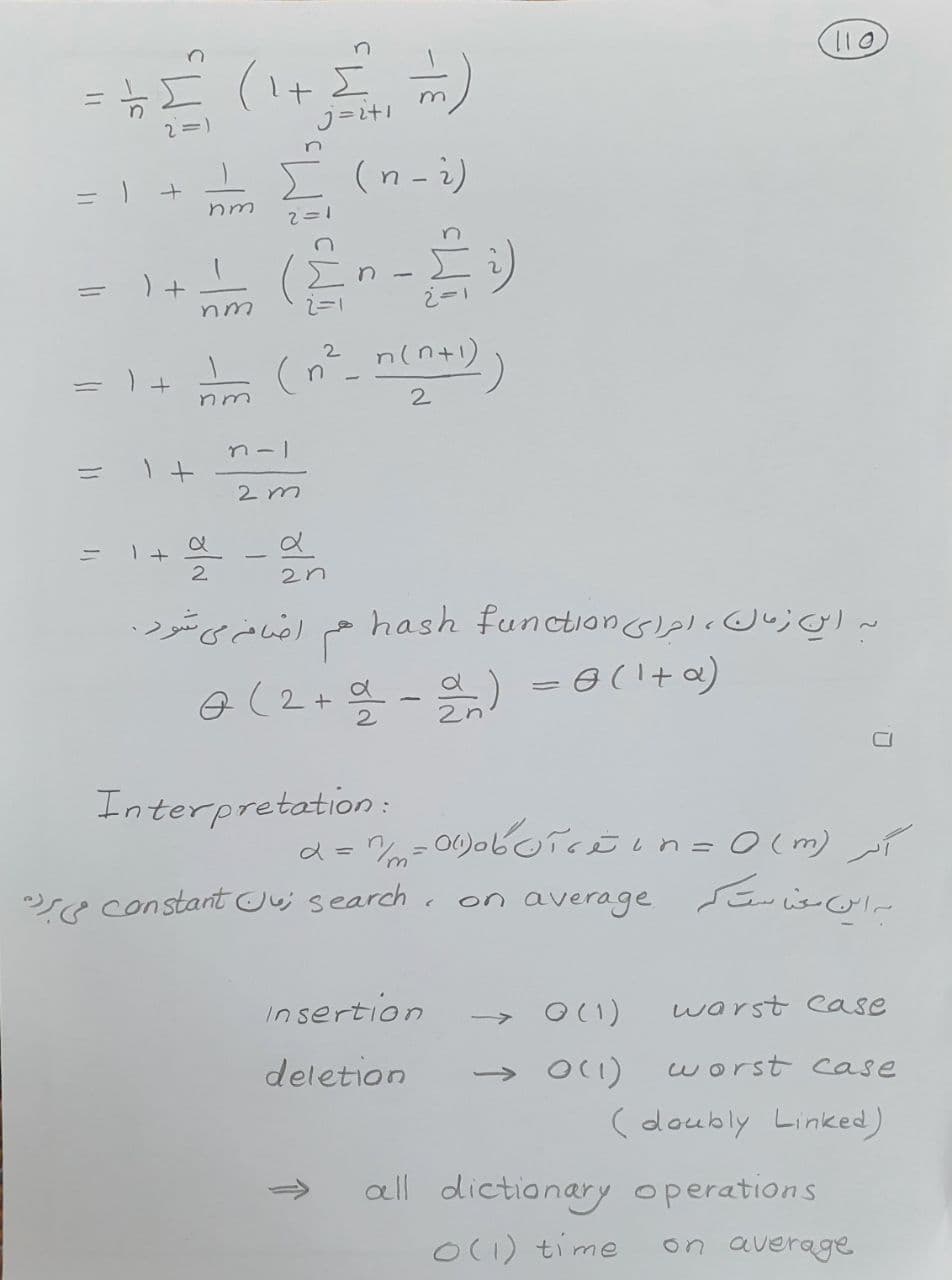 110
= 1/n Σ_{i=1}^{n} (1 + Σ_{j=i+1}^{n} 1/m)
= 1 + 1/nm Σ_{i=1}^{n} (n - i)
= 1 + 1/nm (Σ_{i=1}^{n} n - Σ_{i=1}^{n} i)
= 1 + 1/nm (n² - n(n+1)/2)
= 1 + (n-1)/2m
= 1 + α/2 - α/2n
به این زمان، اجرای hash function هم اضافه می‌شود.
Θ(2 + α/2 - α/2n) = Θ(1+α)
□
Interpretation:
اگر n = O(m) ، آن‌گاه α = n/m = O(1)
به این معناست که on average ، search زمان constant می‌برد
insertion → O(1) worst case
deletion → O(1) worst case
(doubly Linked)
⇒ all dictionary operations
O(1) time on average